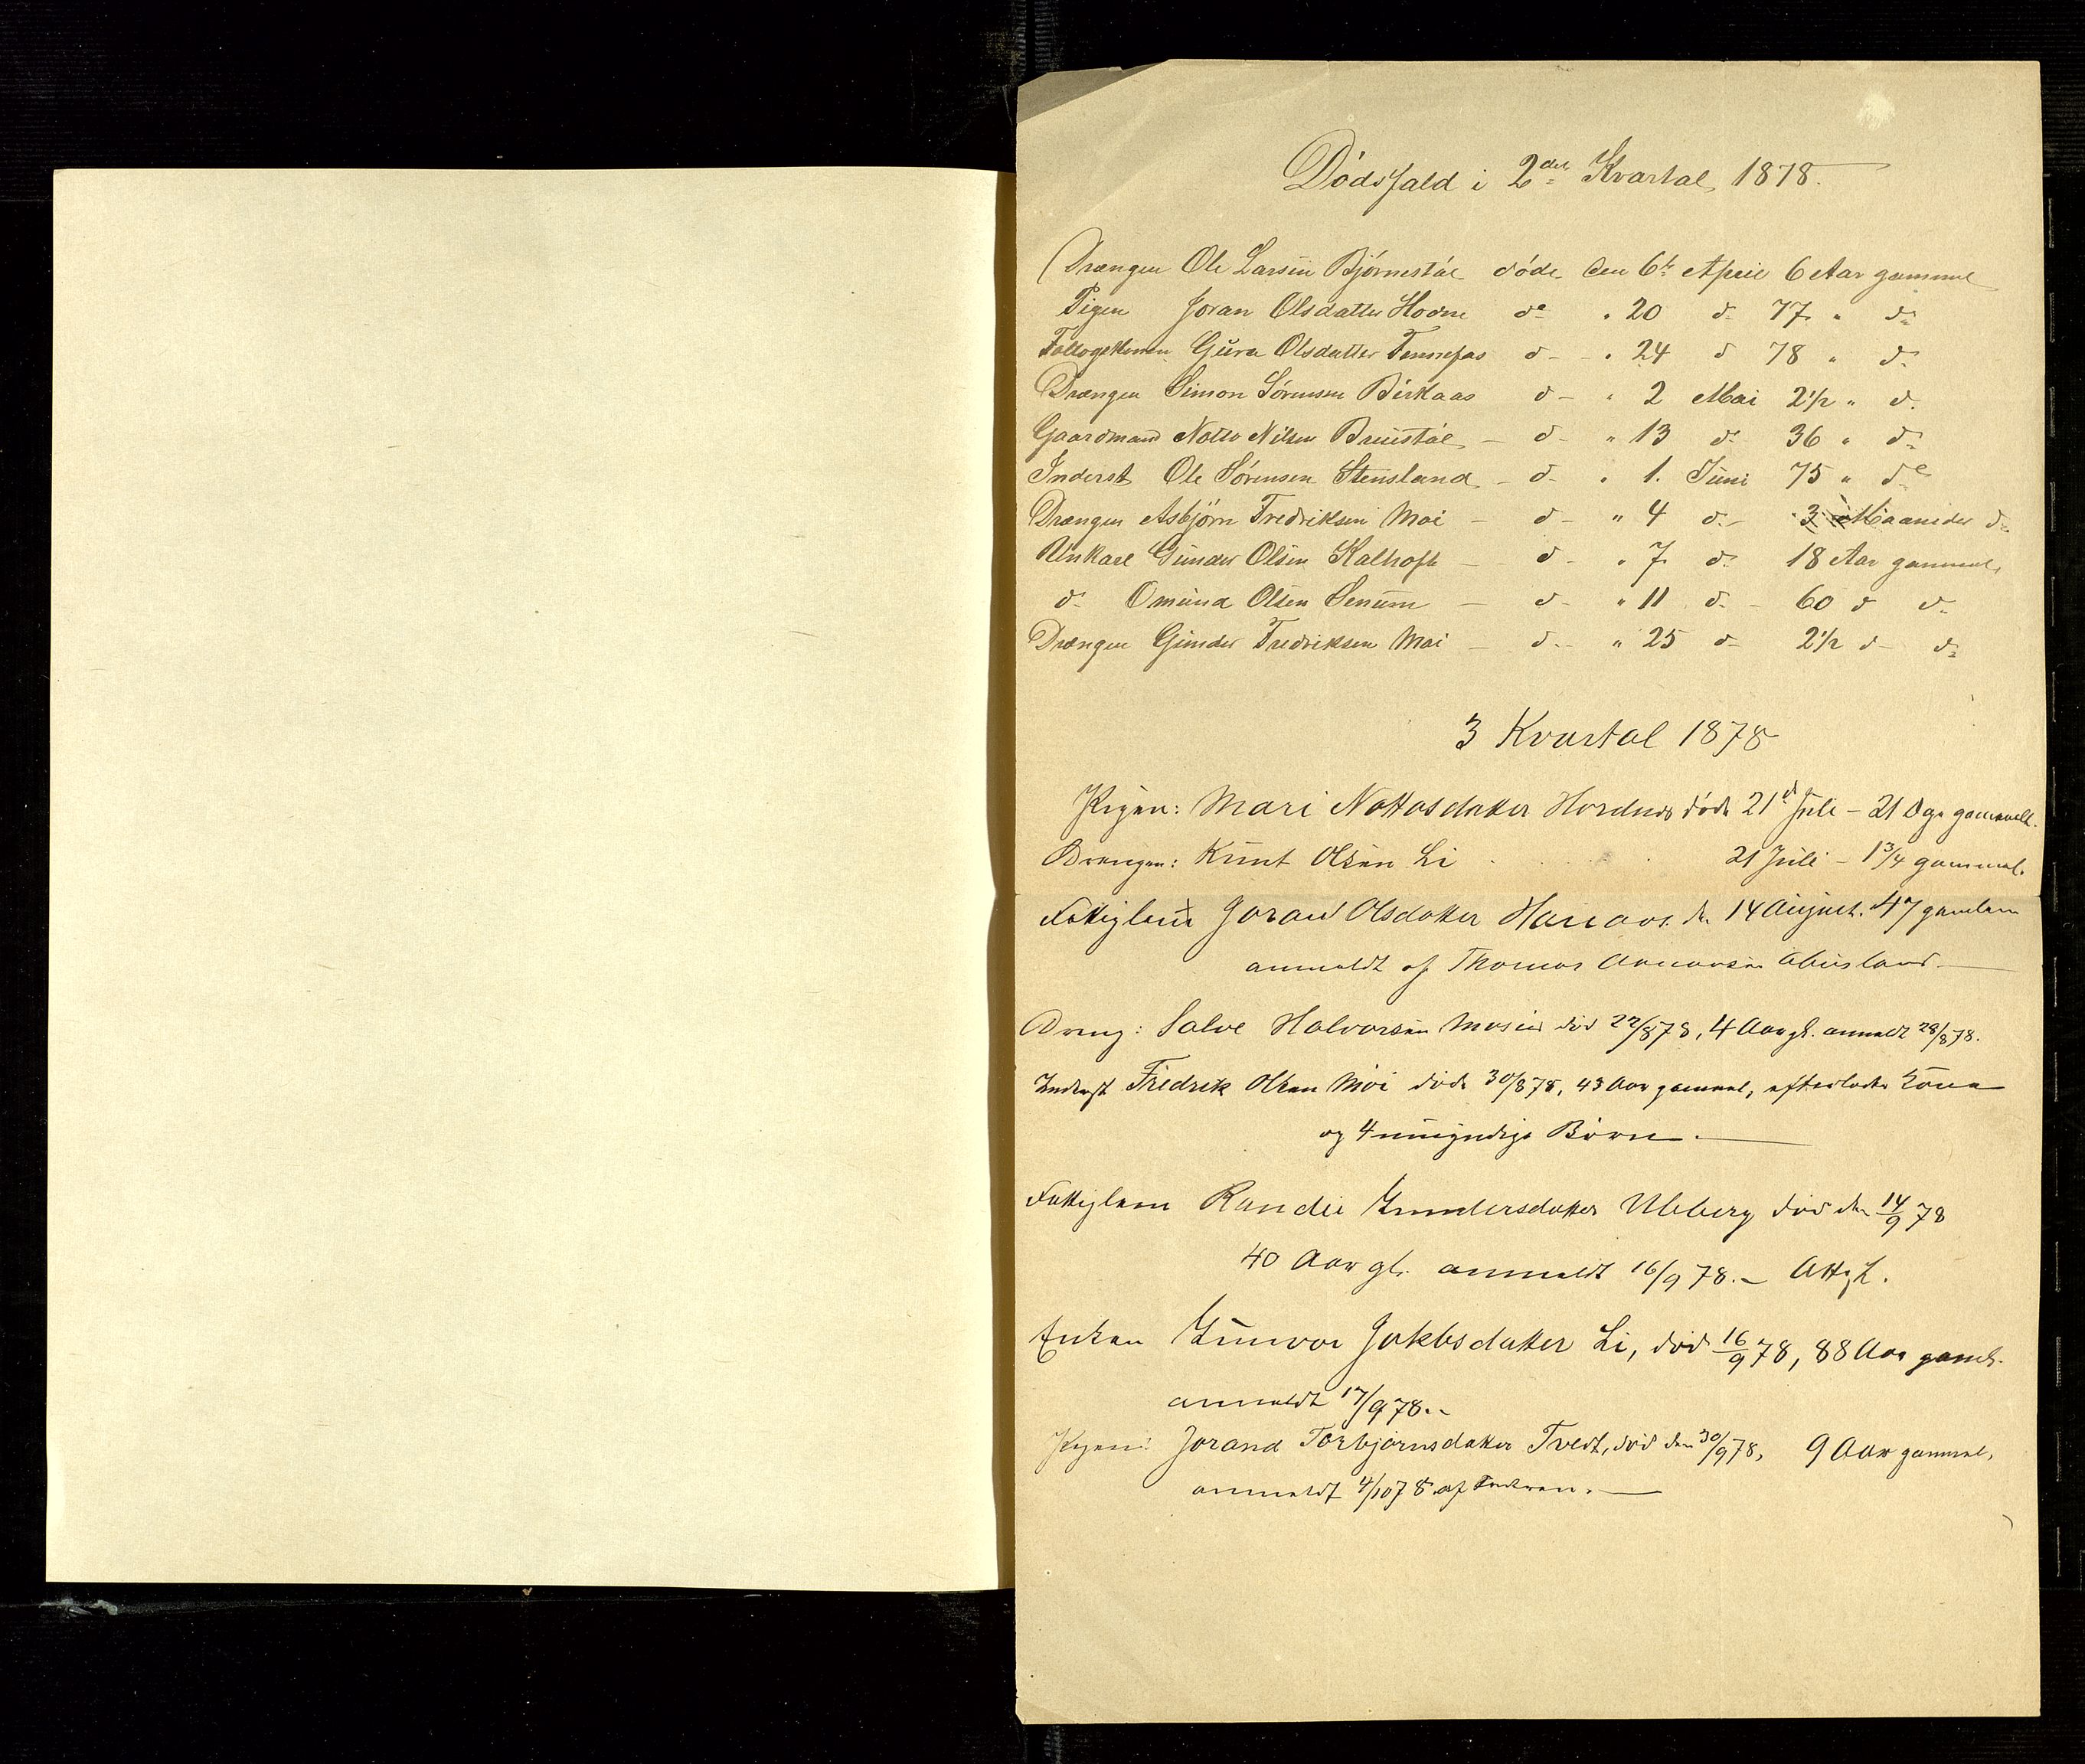 Dödsfald i 2det Kvartal 1878.
Drængen Ole Larsen Bjørnestøl döde den 6te April 6 Aar gammel
Pigen Joran Olsdatter Hodne do " 20 do 77 " do
Guro Olsdatter d " 24 d 78 " do
Drængen Simon Sörensen Birkaas d " 2 Mai 2½ " d.
Gaardmand Notto Nilsen d " 13 do 36 " do
Inderst Ole Sörensen Stensland d " 1. Juni 75 " de
Drængen Asbjörn Fredriksen Moi d " 4 d. 3 Maaneder do
Unkarl Gunder Olsen Kalhoft d " 7 do 18 Aar gammel
do Omund Olsen Senum d " 11 d. 60 d do
Drængen Gunder Fredriksen Moi d. " 25 d 2½ d do
3 Kvartal 1878
Pigen: Mari Nottosdatter döde 21d Juli – 21 Dge gammel.
Drengen: Knut Olsen Li 21 Juli – 1¾ gammel.
Fattiglem Joran Olsdatter d. 14 August. 47 gamlem
anmeldt af Thomas Aanonsen Abusland
Dreng: Salve Halvorsen död 22/8 78, 4 Aar gl. anmeldt 28/8 78.
Inderst Fredrik Olsen Moi döde 30/8 78, 43 Aar gammel, efterlader Kone
og 4 umyndige Börn.
Fattiglem Randei Gundersdatter Uleberg död den 14/9 78
40 Aar gl. anmeldt 16/9 78.
Enken Gunvor Jakobsdatter Li, död 16/9 78, 88 Aar gamel.
anmeldt 17/9 78.
Pigen: Jorand Torbjørnsdatter Tveit, död den 30/9 78, 9 Aar gammel,
anmeldt 4/10 78 af Faderen.